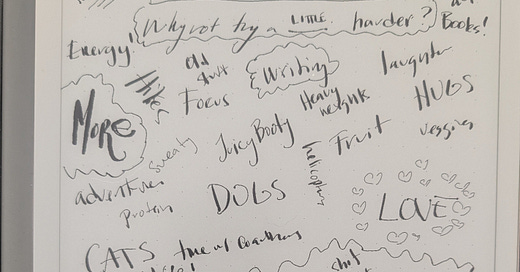 Why not try a LITTLE harder?
Books!
Energy!
old
Writing
laughter
Hikes
Focus
Heavy
weights
HUGS
MORE
Juicy Booty
Fruit
veggies
sweaty
helicopters
adventures
protein
DOGS
LOVE
CATS
time w/
shit